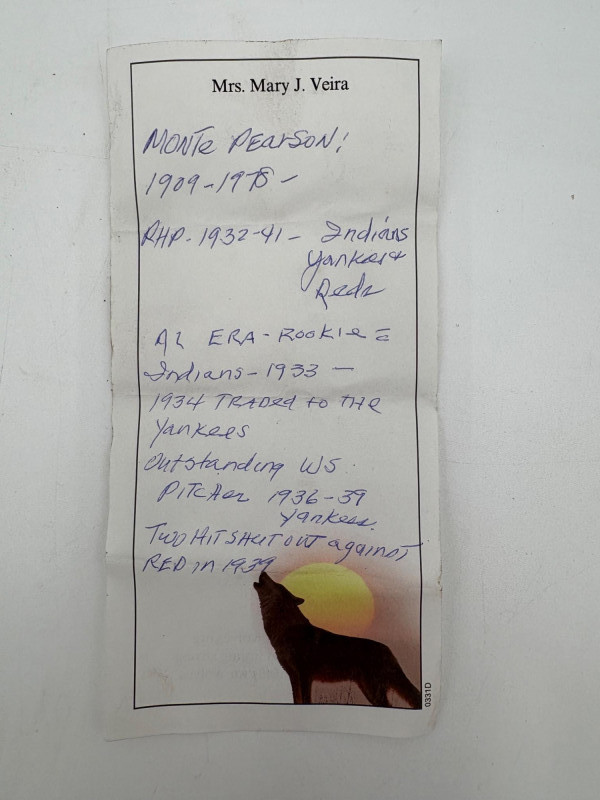 Mrs. Mary J. Veira
MONTE PEARSON!
1909-1978 -
RHP. 1932-41 - Indians
Yankees
Reds
AL ERA - ROOKIE =
Indians - 1933 -
1934 TRADED to THE
Yankees
Outstanding WS
PITCHER 1936-39
Yankees.
TWO HIT SHUT OUT against
RED in 1939
0331D